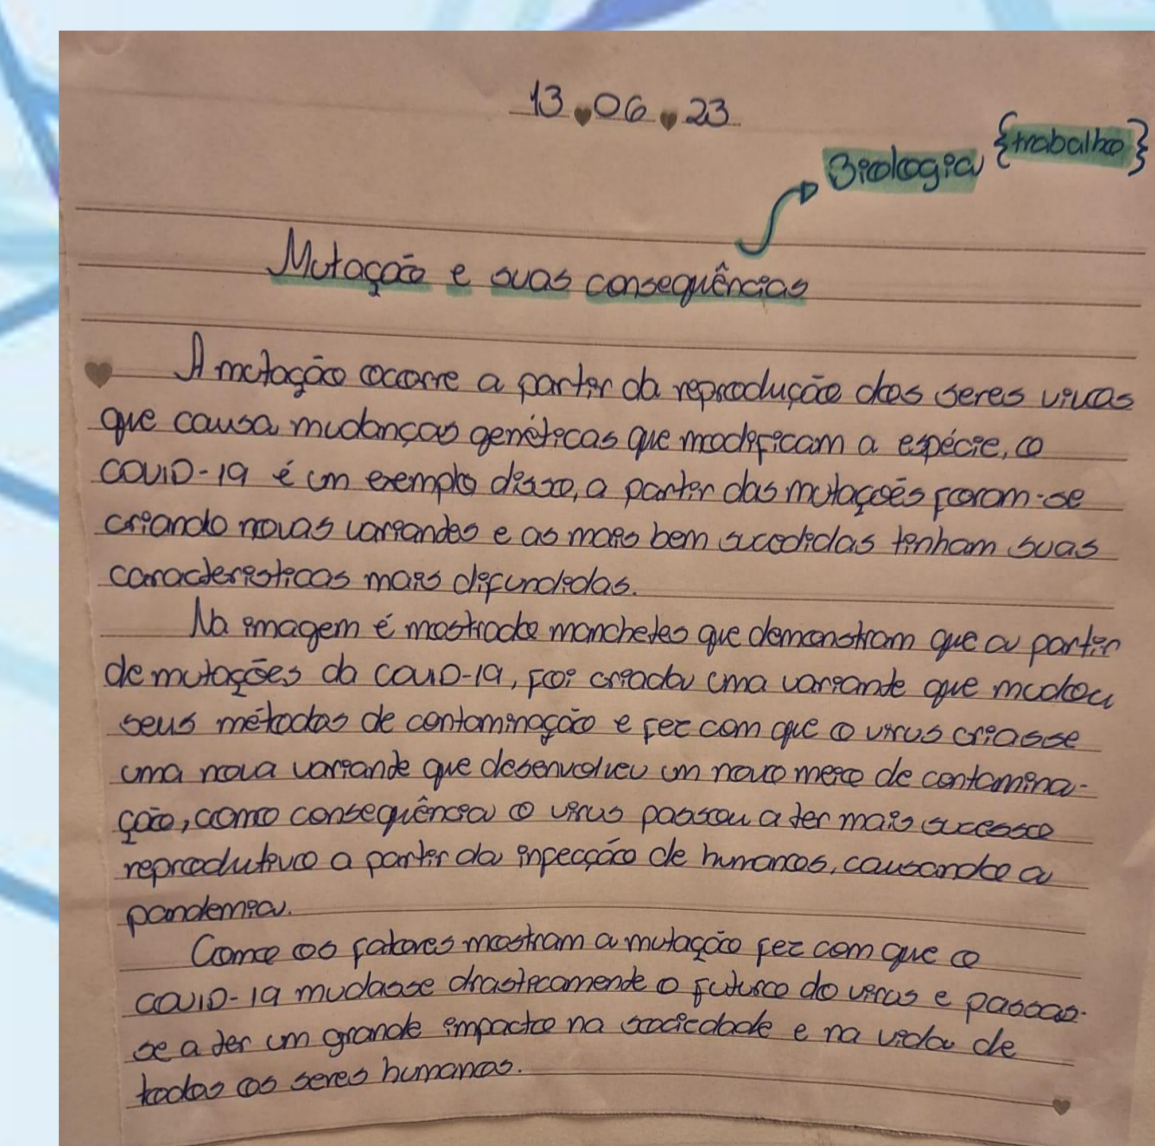 13.06.23
Biologia {trabalho}
Mutação e suas consequências
A mutação ocorre a partir da reprodução dos seres vivos
que causa mudanças genéticas que modificam a espécie, o
COVID-19 é um exemplo disso, a partir das mutações foram-se
criando novas variandes e as mais bem sucedidas tinham suas
caracteristicas mais difundidas.
Na imagem é mostrado manchetes que demonstram que a partir
de mutações da COVID-19, foi criada uma variante que mudou
seus métodos de contaminação e fez com que o virus criasse
uma nova variande que desenvolveu um novo meio de contamina-
ção, como consequência o virus passou a ter mais sucesso
reprodutivo a partir da infecção de humanos, causando a
pandemia.
Como os fatores mostram a mutação fez com que o
COVID-19 mudasse drasticamente o futuro do virus e passas-
se a ter um grande impacto na sociedade e na vida de
todos os seres humanos.